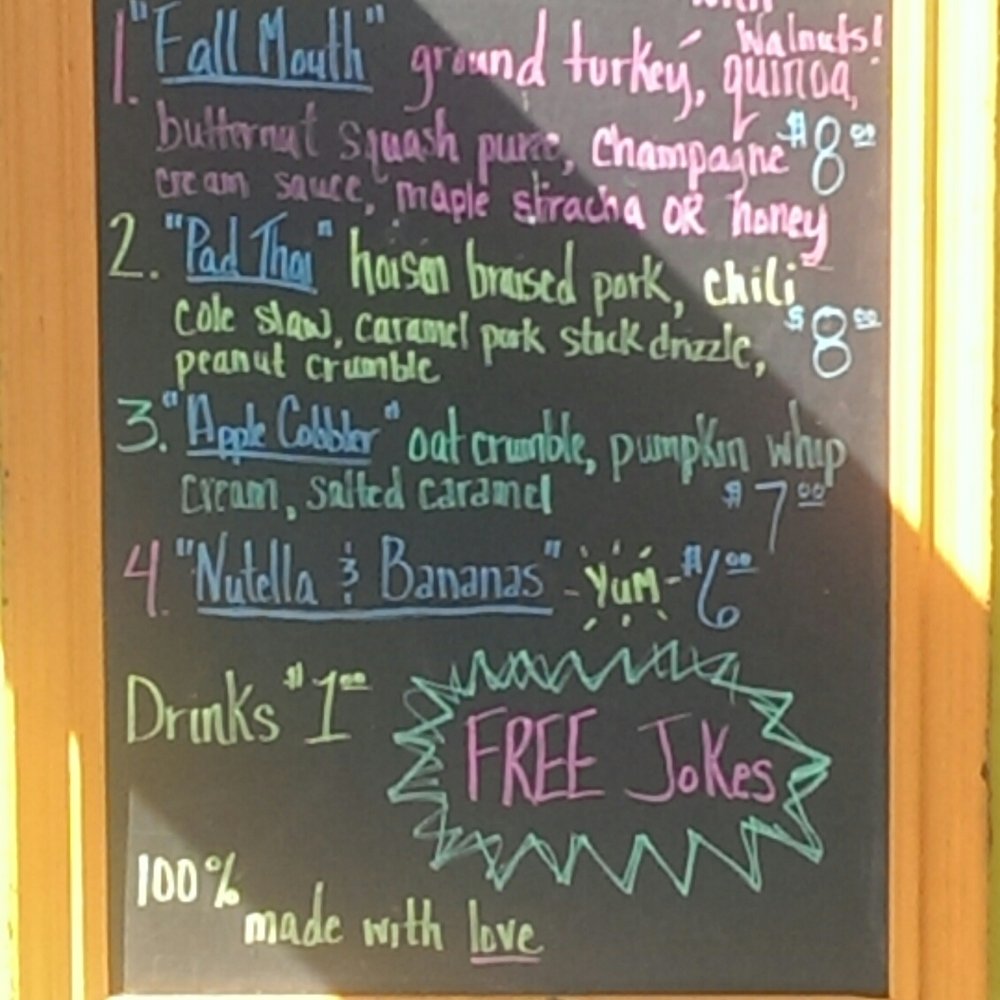 with
Walnuts!
1. "Fall Mouth" ground turkey, quinoa,
butternut squash puree, champagne $8.00
cream sauce, maple sriracha OR honey
2. "Pad Thai" hoisin braised pork, chili
cole slaw, caramel pork stock drizzle, $8.00
peanut crumble
3. "Apple Cobbler" oat crumble, pumpkin whip
cream, salted caramel $7.00
4. "Nutella & Bananas" - Yum - $6.00
Drinks $1.00
FREE Jokes
100%
made with love